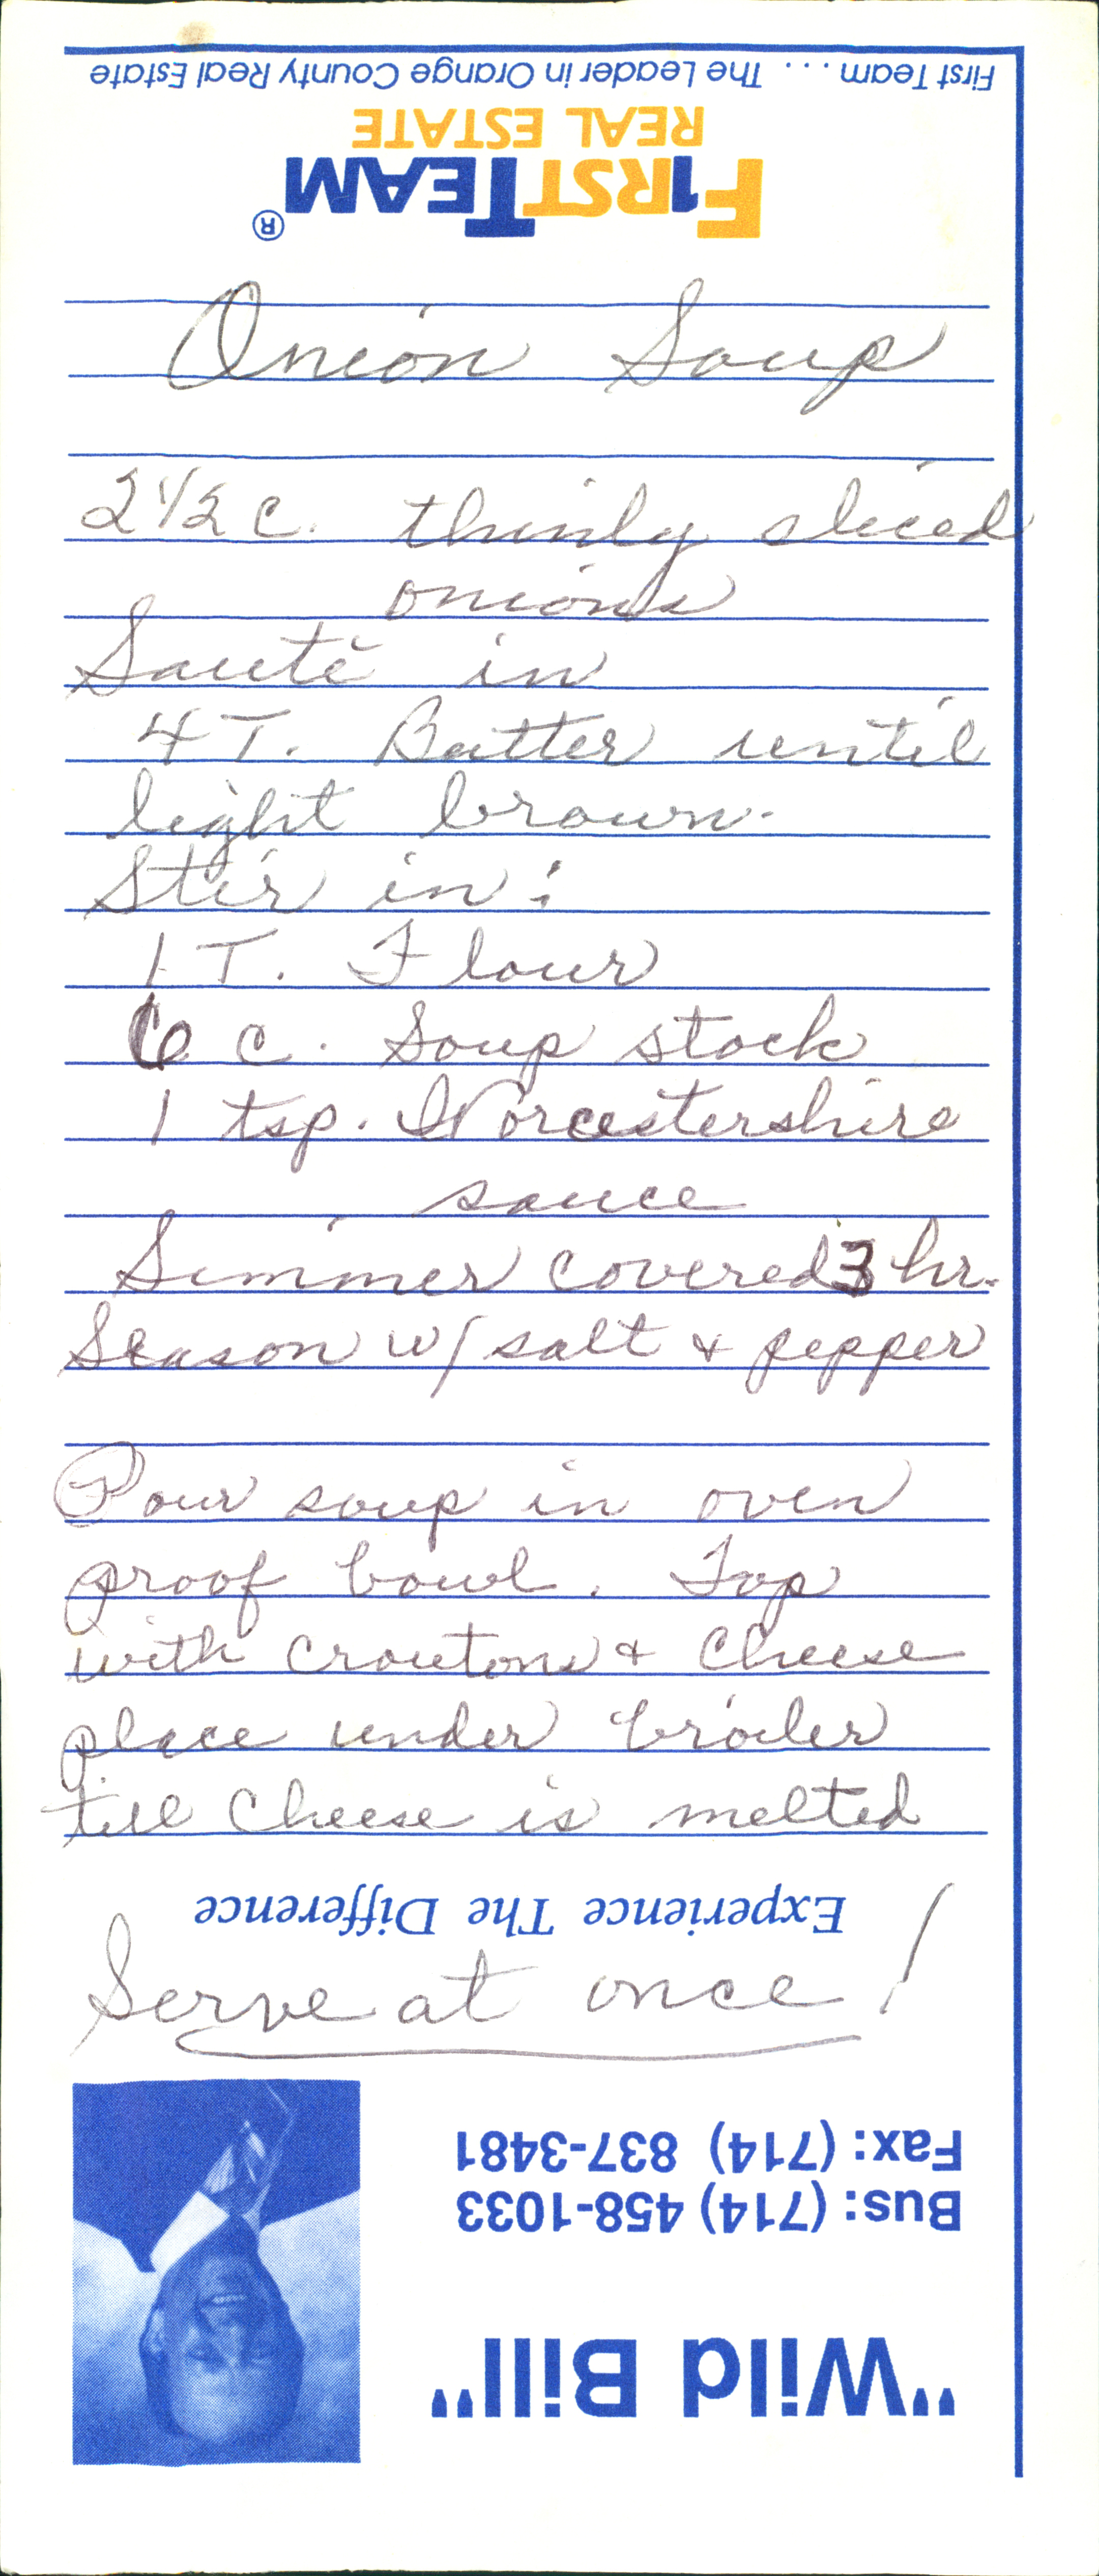 First Team . . . The Leader in Orange County Real Estate
REAL ESTATE
FIRST TEAM®
Onion Soup
2 1/2 c. thinly sliced
onions
Sautè in
4 T. Butter until
light brown.
Stir in:
1 T. Flour
6 c. Soup stock
1 tsp. Worcestershire
sauce
Simmer covered 3 hr.
Season w/ salt & pepper
Pour soup in oven
proof bowl. Top
with croutons & Cheese
place under broiler
till Cheese is melted
Experience The Difference
Serve at once!
Fax: (714) 837-3481
Bus: (714) 458-1033
"Wild Bill"